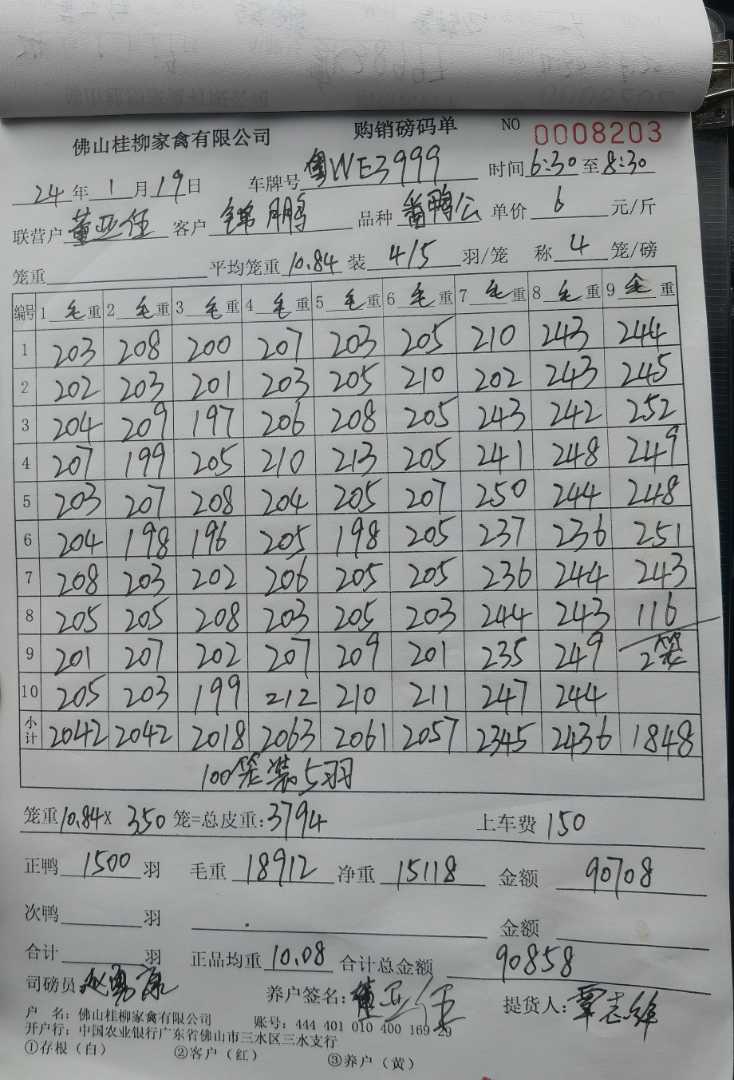 佛山桂柳家禽有限公司 购销磅码单 NO 0008203
24年1月19日 车牌号 粤WE3999 时间6:30至8:30
联营户 董亚伍 客户 锦鹏 品种 番鸭公 单价 6 元/斤
笼重 平均笼重 10.84 装 4/5 羽/笼 称 4 笼/磅
编号 1 毛重 2 毛重 3 毛重 4 毛重 5 毛重 6 毛重 7 毛重 8 毛重 9 毛重
1 203 208 200 207 203 205 210 243 244
2 202 203 201 203 205 210 202 243 245
3 204 209 197 206 208 205 243 242 252
4 207 199 205 210 213 205 241 248 249
5 203 207 208 204 205 207 250 244 248
6 204 198 196 205 198 205 237 236 251
7 208 203 202 206 205 205 236 244 243
8 205 205 208 203 205 203 244 243 116
9 201 207 202 207 209 201 235 249 2笼
10 205 203 199 212 210 211 247 244
小计 2042 2042 2018 2063 2061 2057 2345 2436 1848
100笼装5羽
笼重10.84× 350 笼=总皮重:3794 上车费 150
正鸭 1500 羽 毛重 18912 净重 15118 金额 90708
次鸭 羽 金额
合计 羽 正品均重 10.08 合计总金额 90858
司磅员 养户签名:董亚伍 提货人:覃志
户 名:佛山桂柳家禽有限公司 账号:444 401 010 400 169 29
开户行:中国农业银行广东省佛山市三水区三水支行
①存根(白) ②客户(红) ③养户(黄)